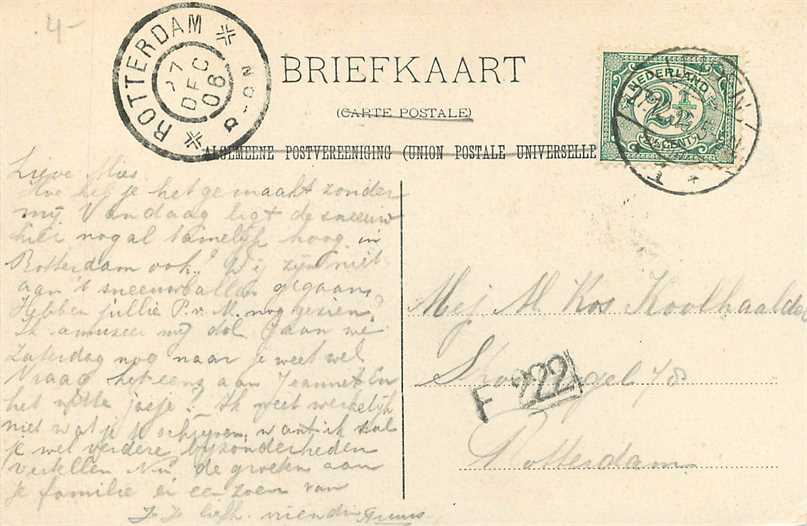 4-
ROTTERDAM
27
DEC
06
8-9N
BRIEFKAART
(CARTE POSTALE)
ALGEMEENE POSTVEREENIGING (UNION POSTALE UNIVERSELLE
NEDERLAND
2½
CENT
Lieve Mies.
Hoe heb je het gemaakt zonder
mij. Vandaag ligt de sneeuw
hier nogal tamelijk hoog in
Rotterdam ook? Wij zijn niet
aan 't sneeuwballen gegaan
Hebben jullie P. v. M. nog gezien?
Ik amuseer mij dol. Gaan we
Zaterdag nog naar je weet wel
Vraag het eens aan Jeannet En
het witte jasje? Ik weet werkelijk
niet wat je te schrijven, want ik zal
je wel verdere bijzonderheden
vertellen Nu de groeten aan
je familie en een zoen van
je liefh. vriendin
Mej M Kos Koolhaalder
F 222
singel 78
Rotterdam